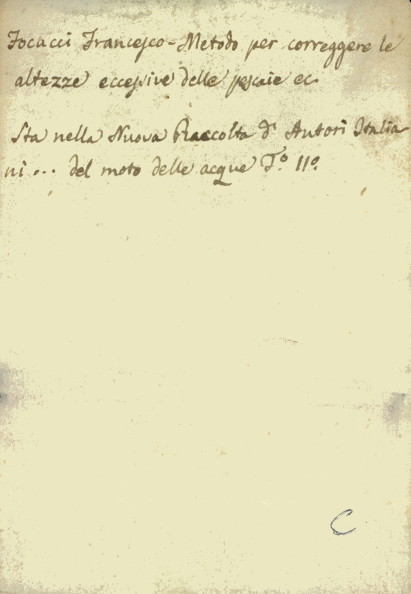 Focacci Francesco - Metodo per correggere le
altezze eccessive delle pescaie ec.
Sta nella Nuova Raccolta d' Autori Italia
ni ... del moto delle acque T.o 11.o
C